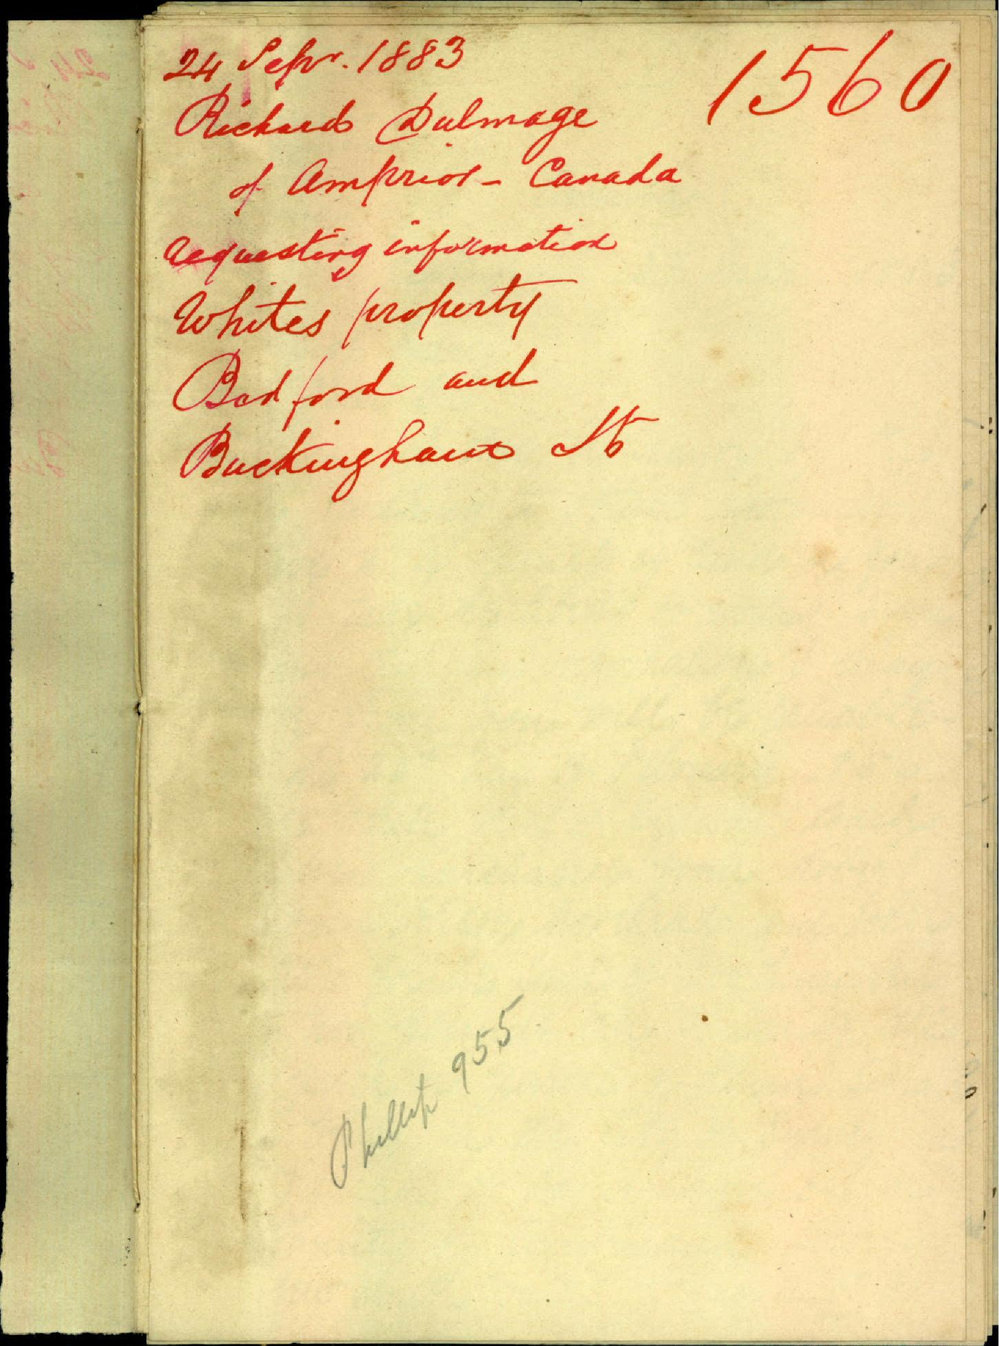 24 Sepr. 1883
1560
Richard Dulmage
of Amprior - Canada
requesting information
Whites property
Bedford and
Buckingham St
Phillip 955